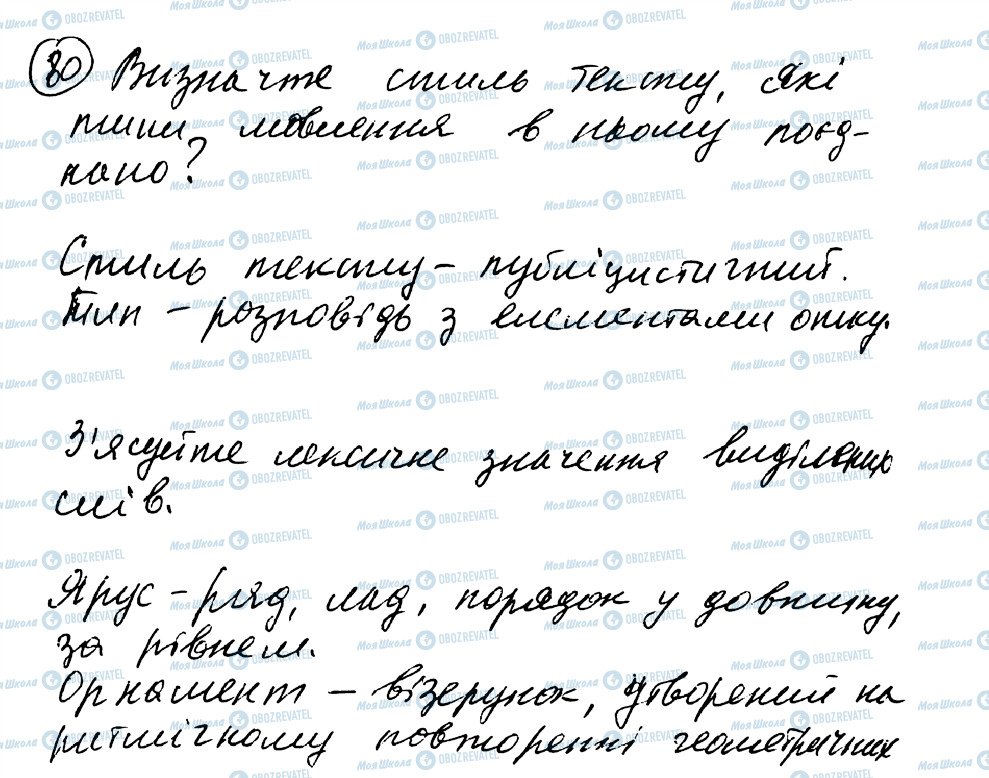 80 Визначте стиль тексту, які
типи мовлення в ньому поєд-
нано?
Стиль тексту – публіцистичний.
Тип – розповідь з елементами опису.
З'ясуйте лексичне значення виділених
слів.
Ярус – ряд, лад, порядок у довжину,
за рівнем.
Орнамент – візерунок, утворений на
ритмічному повторенні геометричних